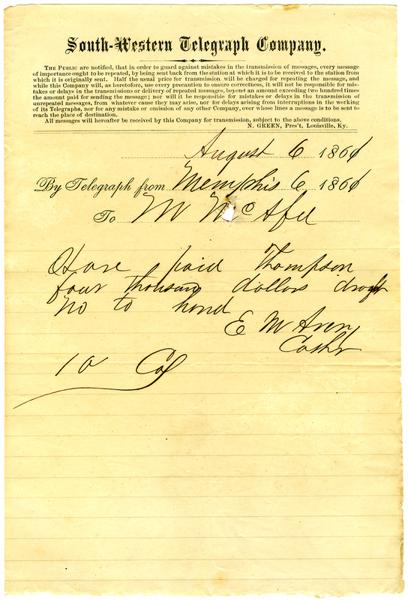 South-Western Telegraph Company.
THE PUBLIC are notified, that in order to guard against mistakes in the transmission of messages, every message
of importance ought to be repeated, by being sent back from the station at which it is to be received to the station from
which it is originally sent. Half the usual price for transmission will be charged for repeating the message, and
while this Company will, as heretofore, use every precaution to ensure correctness, it will not be responsible for mis-
takes or delays in the transmissions or delivery of repeated messages, beyond an amount exceeding two hundred times
the amount paid for sending the message; nor will it be responsible for mistakes or delays in the transmission of
unrepeated messages, from whatever cause they may arise, nor for delays arising from interruptions in the working
of its Telegraphs, nor for any mistake or omission of any other Company, over whose lines a message is to be sent to
reach the place of destination.
All messages will hereafter be received by this Company for transmission, subject to the above conditions.
N. GREEN, Pres't, Louisville, Ky.
August 6 1861
By Telegraph from Memphis 6 1861
To W McAfee
Have paid Thompson
four thousand dollars
no to hand
E M Avery
Cashr
10 Col